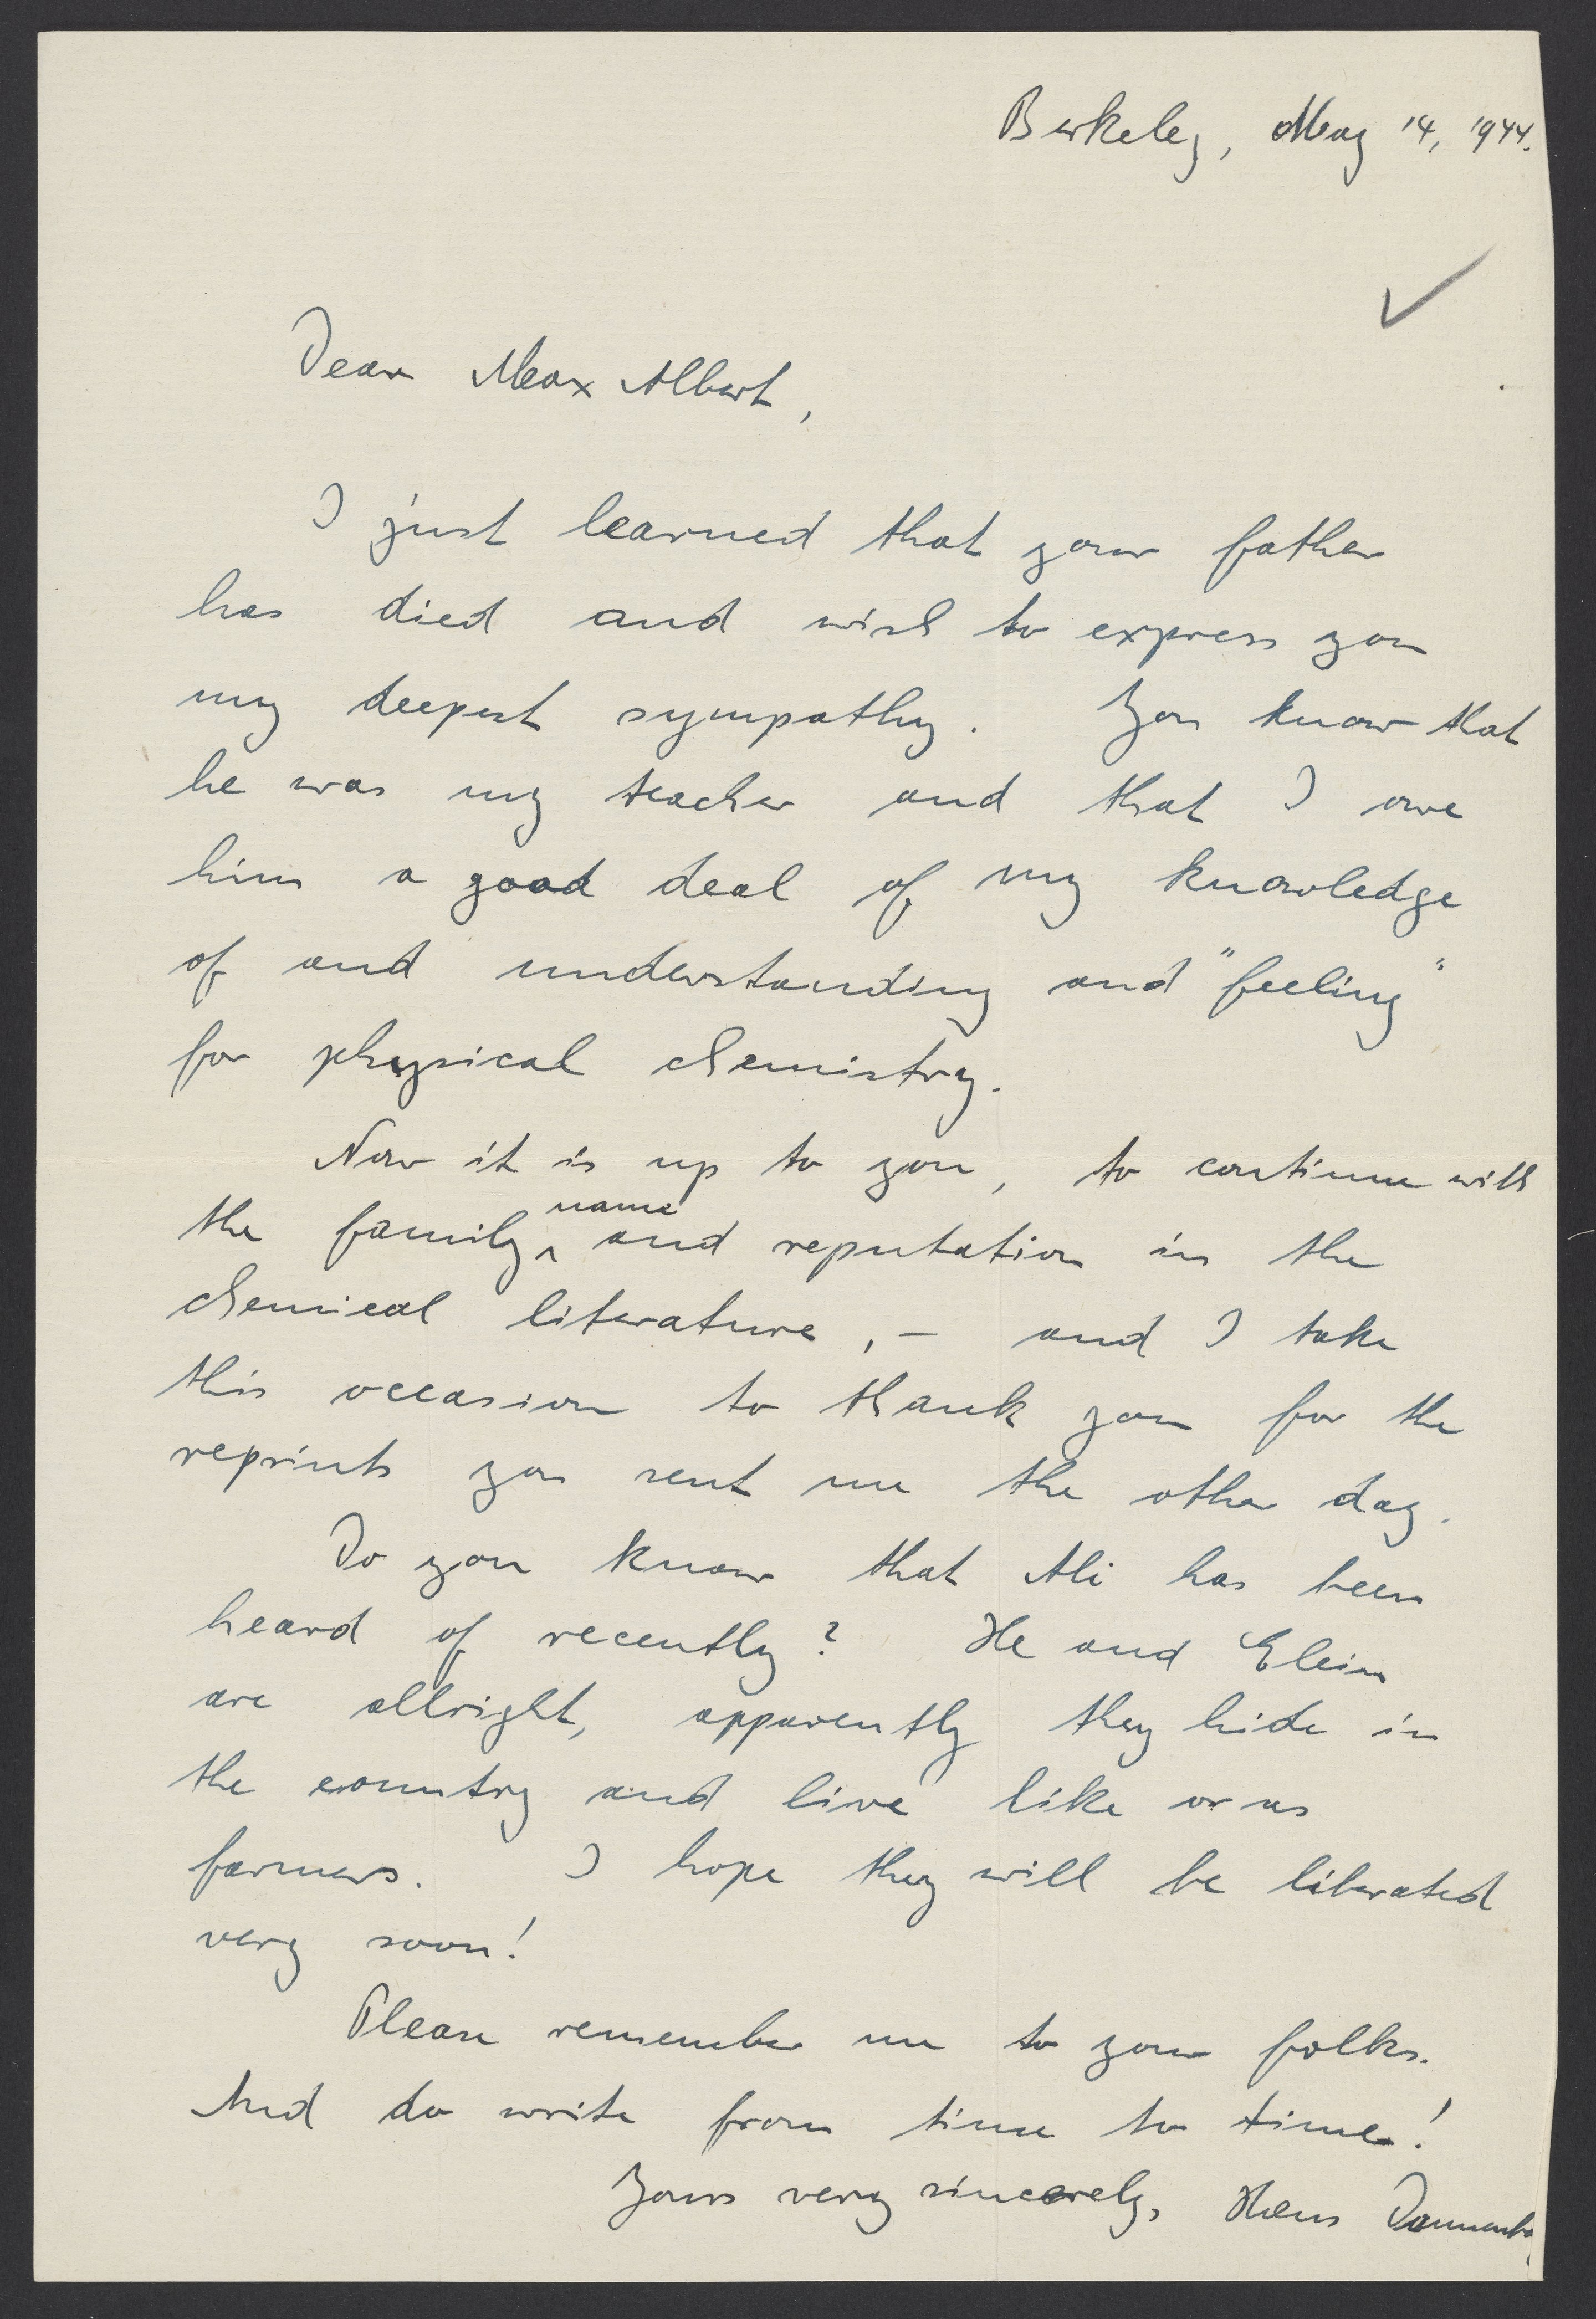 Berkeley, May 14, 1944.
Dear Max Albert,
I just learned that your father
has died and wish to express you
my deepest sympathy. You know that
he was my teacher and that I owe
him a good deal of my knowledge
of and understanding and "feeling"
for physical chemistry.
Now it is up to you, to continue with
the family name and reputation in the
chemical literature, - and I take
this occasion to thank you for the
reprints you sent me the other day.
Do you know that Ali has been
heard of recently? He and
are allright, apparently they hide in
the country and live like or as
farmers. I hope they will be liberated
very soon!
Please remember me to your folks.
And do write from time to time!
Yours very sincerely, Hans